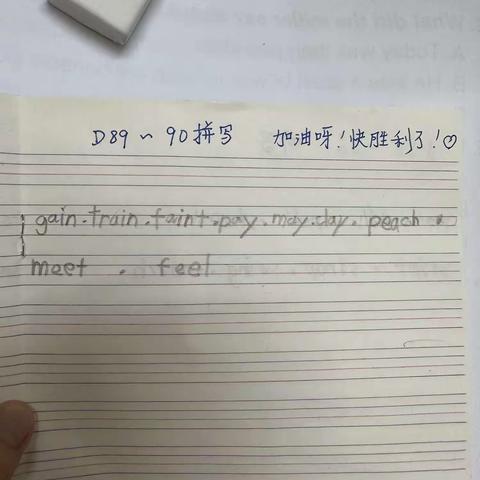 What did the
A. Today was
B. He
D89~90拼写 加油呀!快胜利了!♡
gain.train.faint.pay.may.day.peach.
meet . feel